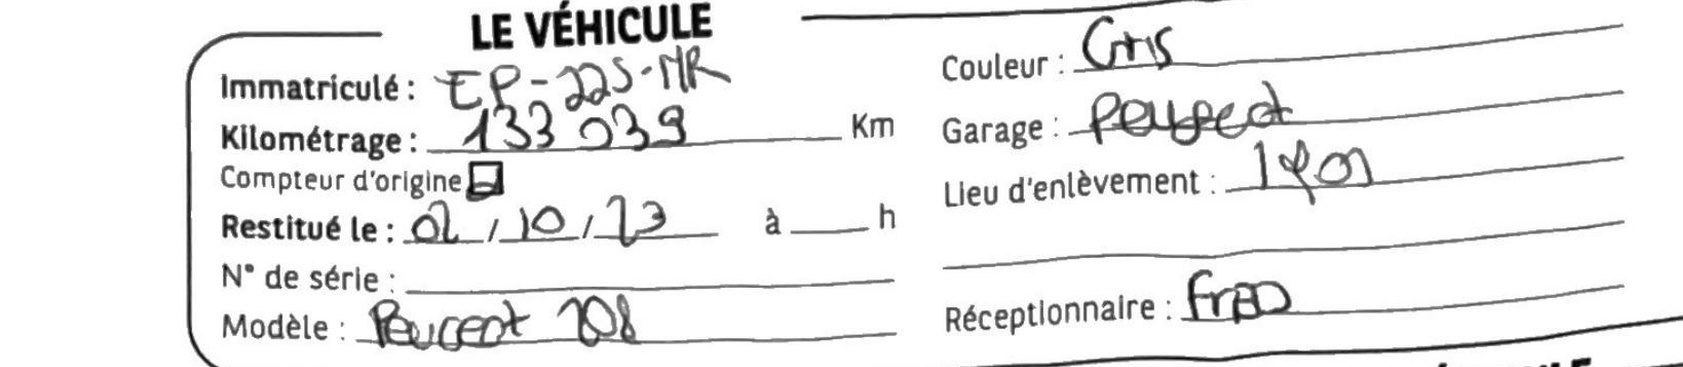 LE VÉHICULE
Immatriculé : EP-225-MR
Kilométrage : 133 039 Km
Compteur d'origine
Restitué le : 02 / 10 / 23 à h
N° de série :
Modèle : Peugeot 208
Couleur : Gris
Garage : Peugeot
Lieu d'enlèvement : lyon
Réceptionnaire : FRED